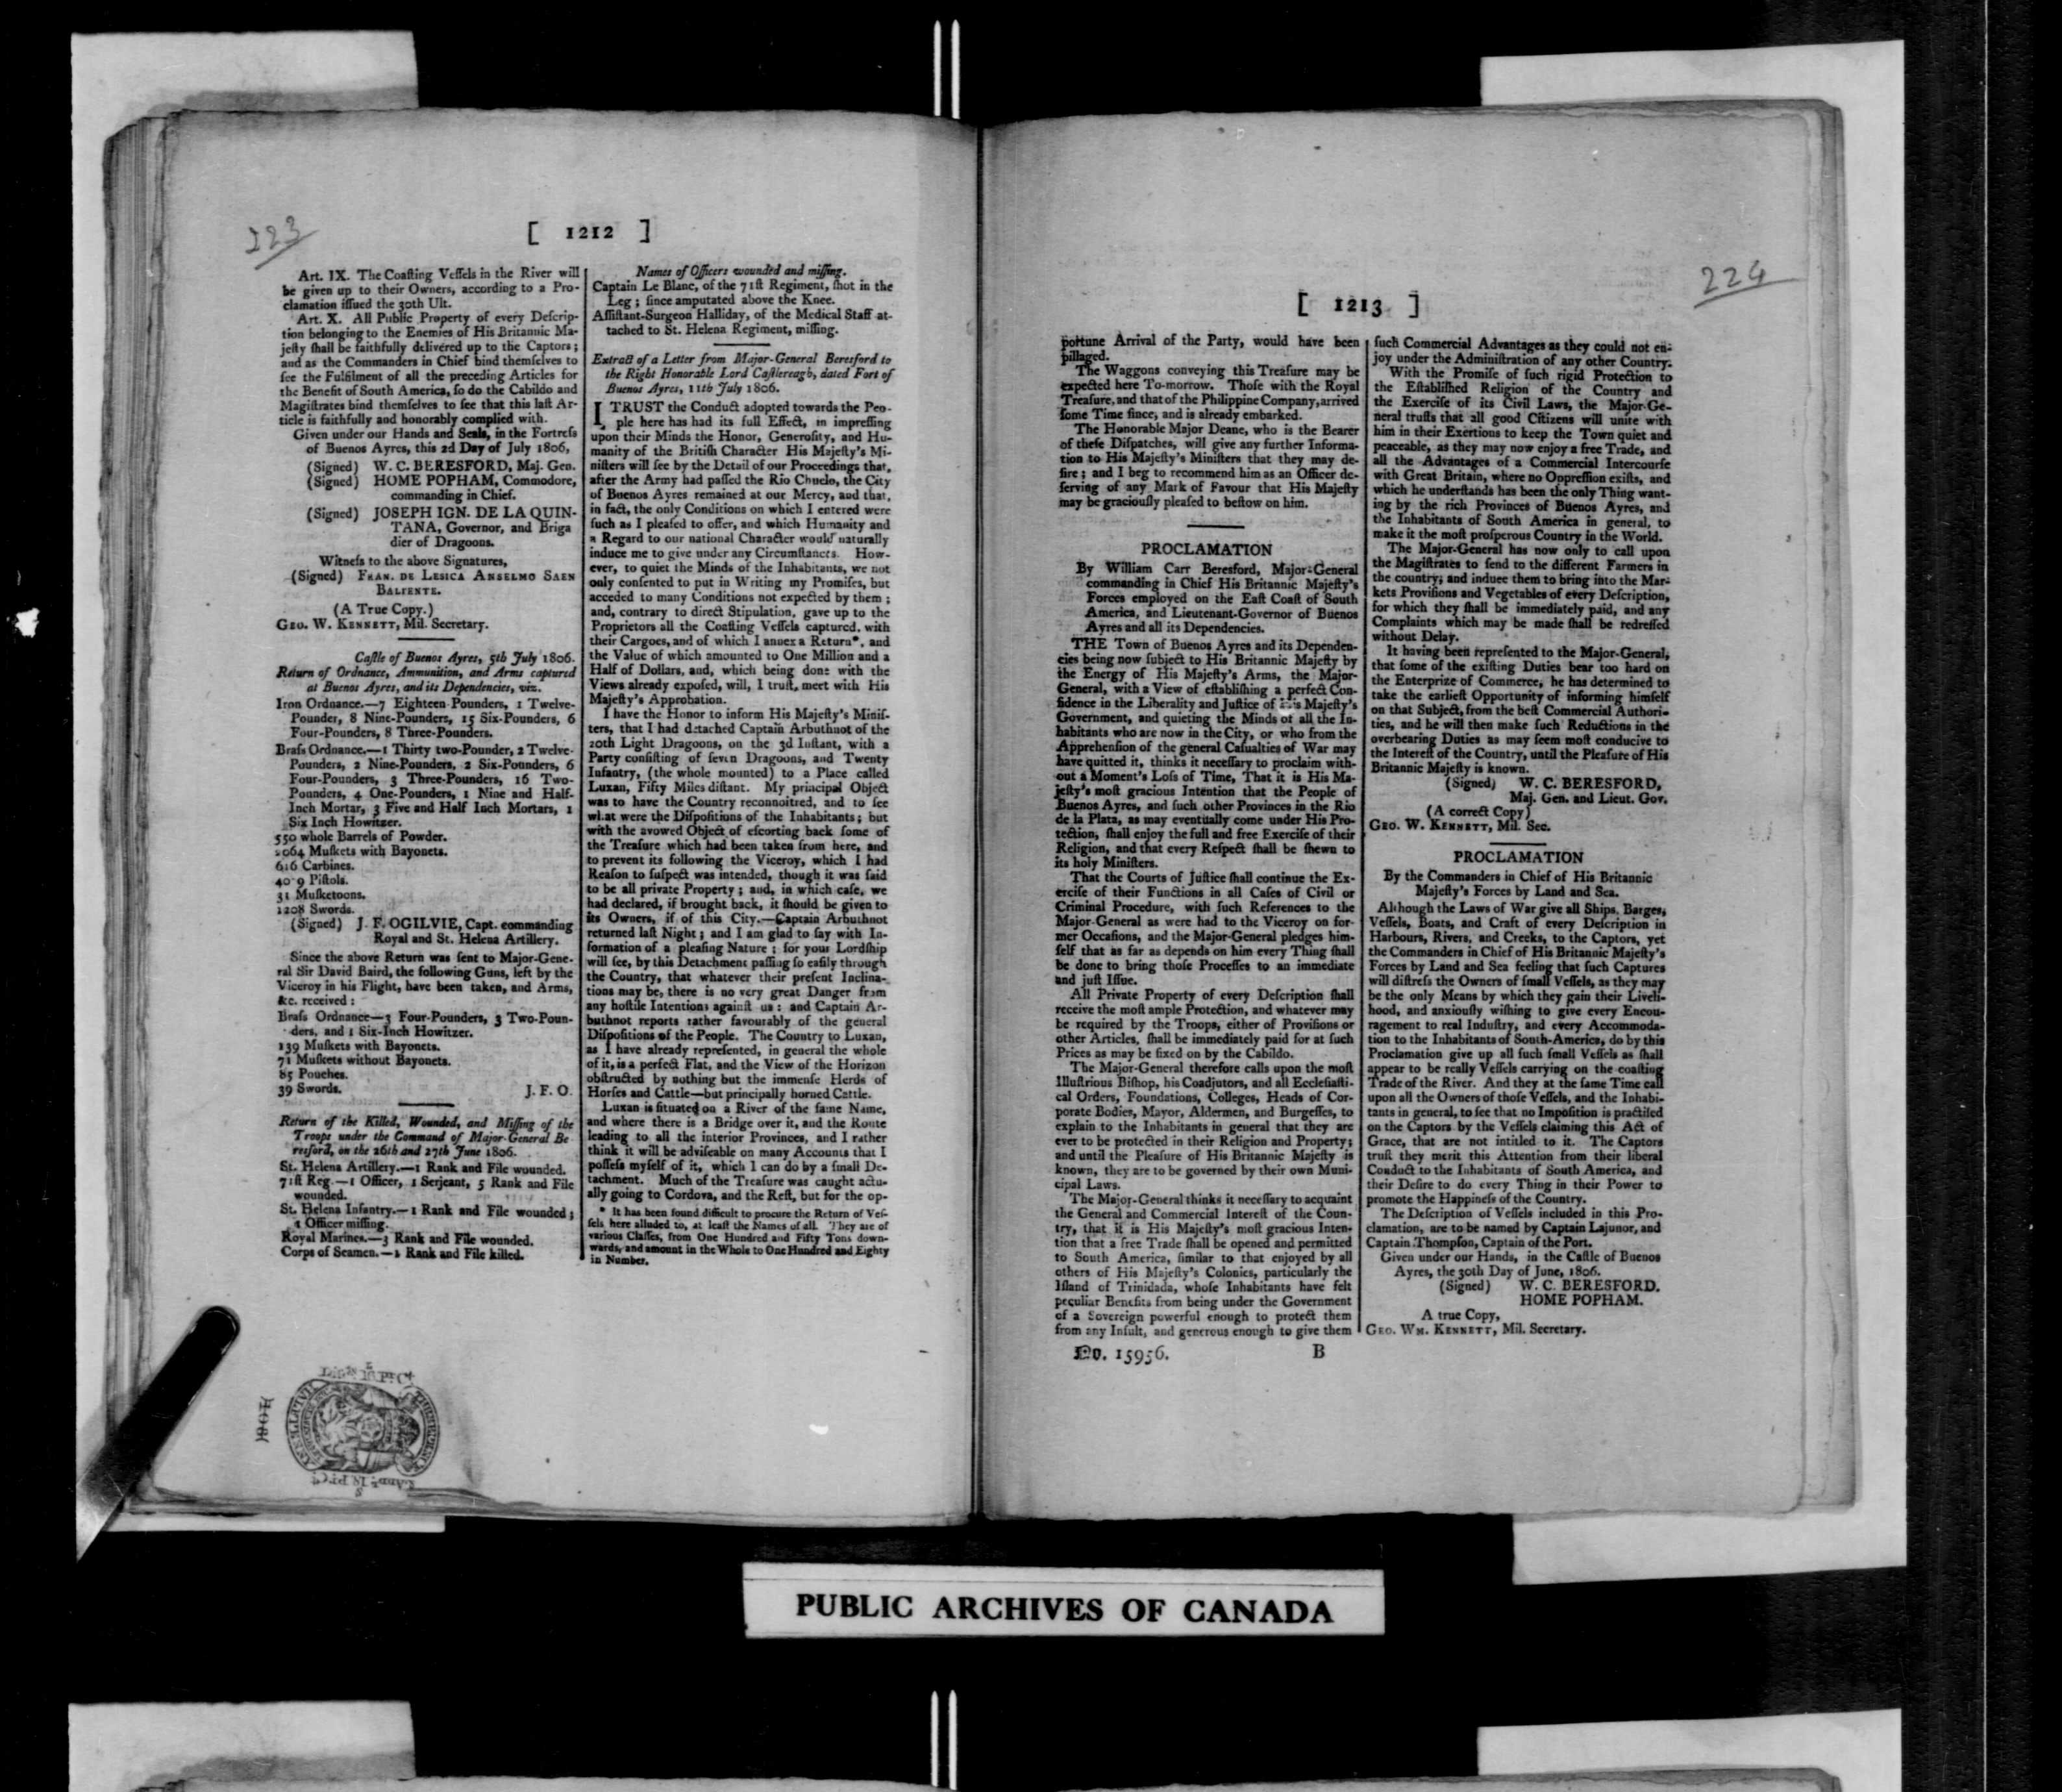 223
[ 1212 ]
Art. IX. The Coaſting Veſſels in the River will
be given up to their Owners, according to a Pro-
clamation iſſued the 30th Ult.
Art. X. All Public Property of every Deſcrip-
tion belonging to the Enemies of His Britannic Ma-
jeſty ſhall be faithfully delivered up to the Captors;
and as the Commanders in Chief bind themſelves to
ſee the Fulfilment of all the preceding Articles for
the Benefit of South America, ſo do the Cabildo and
Magiſtrates bind themſelves to ſee that this laſt Ar-
ticle is faithfully and honorably complied with.
Given under our Hands and Seals, in the Fortreſs
of Buenos Ayres, this 2d Day of July 1806,
(Signed) W. C. BERESFORD, Maj. Gen.
(Signed) HOME POPHAM, Commodore,
commanding in Chief.
(Signed) JOSEPH IGN. DE LA QUIN-
TANA, Governor, and Briga
dier of Dragoons.
Witneſs to the above Signatures,
(Signed) FRAN. DE LESICA ANSELMO SAEN
BALIENTE.
(A True Copy.)
GEO. W. KENNETT, Mil. Secretary.
Caſtle of Buenos Ayres, 5th July 1806.
Return of Ordnance, Ammunition, and Arms captured
at Buenos Ayres, and its Dependencies, viz.
Iron Ordnance.—7 Eighteen Pounders, 1 Twelve-
Pounder, 8 Nine-Pounders, 15 Six-Pounders, 6
Four-Pounders, 8 Three-Pounders.
Braſs Ordnance.—1 Thirty two-Pounder, 2 Twelve-
Pounders, 2 Nine-Pounders, 2 Six-Pounders, 6
Four-Pounders, 3 Three-Pounders, 16 Two-
Pounders, 4 One-Pounders, 1 Nine and Half-
Inch Mortar, 3 Five and Half Inch Mortars, 1
Six Inch Howitzer.
550 whole Barrels of Powder.
2064 Muſkets with Bayonets.
616 Carbines.
Piſtols.
31 Muſketoons.
1208 Swords.
(Signed) J. F. OGILVIE, Capt. commanding
Royal and St. Helena Artillery.
Since the above Return was ſent to Major-Gene-
ral Sir David Baird, the following Guns, left by the
Viceroy in his Flight, have been taken, and Arms,
&c. received:
Braſs Ordnance—3 Four-Pounders, 3 Two-Poun-
ders, and 1 Six-Inch Howitzer.
139 Muſkets with Bayonets.
71 Muſkets without Bayonets.
85 Pouches.
39 Swords. J. F. O.
Return of the Killed, Wounded, and Miſſing of the
Troops under the Command of Major-General Be
resford, on the 26th and 27th June 1806.
St. Helena Artillery.—1 Rank and File wounded.
71ſt Reg.—1 Officer, 1 Serjeant, 5 Rank and File
wounded.
St. Helena Infantry.—1 Rank and File wounded;
1 Officer miſſing.
Royal Marines.—3 Rank and File wounded.
Corps of Seamen.—1 Rank and File killed.
Names of Officers wounded and miſſing.
Captain Le Blanc, of the 71ſt Regiment, ſhot in the
Leg; ſince amputated above the Knee.
Aſſiſtant-Surgeon Halliday, of the Medical Staff at-
tached to St. Helena Regiment, miſſing.
Extract of a Letter from Major-General Beresford to
the Right Honorable Lord Caſtlereagh, dated Fort of
Buenos Ayres, 11th July 1806.
I TRUST the Conduct adopted towards the Peo-
ple here has had its full Effect, in impreſſing
upon their Minds the Honor, Generoſity, and Hu-
manity of the Britiſh Character His Majeſty's Mi-
niſters will ſee by the Detail of our Proceedings that,
after the Army had paſſed the Rio Chuelo, the City
of Buenos Ayres remained at our Mercy, and that,
in fact, the only Conditions on which I entered were
ſuch as I pleaſed to offer, and which Humanity and
a Regard to our national Character would naturally
induce me to give under any Circumſtances. How-
ever, to quiet the Minds of the Inhabitants, we not
only conſented to put in Writing my Promiſes, but
acceded to many Conditions not expected by them;
and, contrary to direct Stipulation, gave up to the
Proprietors all the Coaſting Veſſels captured, with
their Cargoes, and of which I annex a Return*, and
the Value of which amounted to One Million and a
Half of Dollars, and, which being done with the
Views already expoſed, will, I truſt, meet with His
Majeſty's Approbation.
I have the Honor to inform His Majeſty's Miniſ-
ters, that I had detached Captain Arbuthnot of the
20th Light Dragoons, on the 3d Inſtant, with a
Party conſiſting of ſeven Dragoons, and Twenty
Infantry, (the whole mounted) to a Place called
Luxan, Fifty Miles diſtant. My principal Object
was to have the Country reconnoitred, and to ſee
what were the Diſpoſitions of the Inhabitants; but
with the avowed Object of eſcorting back ſome of
the Treaſure which had been taken from here, and
to prevent its following the Viceroy, which I had
Reaſon to ſuſpect was intended, though it was ſaid
to be all private Property; and, in which caſe, we
had declared, if brought back, it ſhould be given to
its Owners, if of this City.—Captain Arbuthnot
returned laſt Night; and I am glad to ſay with In-
formation of a pleaſing Nature; for your Lordſhip
will ſee, by this Detachment paſſing ſo eaſily through
the Country, that whatever their preſent Inclina-
tions may be, there is no very great Danger from
any hoſtile Intentions againſt us: and Captain Ar-
buthnot reports rather favourably of the general
Diſpoſitions of the People. The Country to Luxan,
as I have already repreſented, in general the whole
of it, is a perfect Flat, and the View of the Horizon
obſtructed by nothing but the immenſe Herds of
Horſes and Cattle—but principally horned Cattle.
Luxan is ſituated on a River of the ſame Name,
and where there is a Bridge over it, and the Route
leading to all the interior Provinces, and I rather
think it will be adviſeable on many Accounts that I
poſſeſs myſelf of it, which I can do by a ſmall De-
tachment. Much of the Treaſure was caught actu-
ally going to Cordova, and the Reſt, but for the op-
* It has been found difficult to procure the Return of Veſ-
ſels here alluded to, at leaſt the Names of all. They are of
various Claſſes, from One Hundred and Fifty Tons down-
wards, and amount in the Whole to One Hundred and Eighty
in Number.
224
[ 1213 ]
portune Arrival of the Party, would have been
pillaged.
The Waggons conveying this Treaſure may be
expected here To-morrow. Thoſe with the Royal
Treaſure, and that of the Philippine Company, arrived
ſome Time ſince, and is already embarked.
The Honorable Major Deane, who is the Bearer
of theſe Diſpatches, will give any further Informa-
tion to His Majeſty's Miniſters that they may de-
ſire; and I beg to recommend him as an Officer de-
ſerving of any Mark of Favour that His Majeſty
may be graciouſly pleaſed to beſtow on him.
PROCLAMATION
By William Carr Beresford, Major-General
commanding in Chief His Britannic Majeſty's
Forces employed on the Eaſt Coaſt of South
America, and Lieutenant-Governor of Buenos
Ayres and all its Dependencies.
THE Town of Buenos Ayres and its Dependen-
cies being now ſubject to His Britannic Majeſty by
the Energy of His Majeſty's Arms, the Major-
General, with a View of eſtabliſhing a perfect Con-
fidence in the Liberality and Juſtice of His Majeſty's
Government, and quieting the Minds of all the In-
habitants who are now in the City, or who from the
Apprehenſion of the general Caſualties of War may
have quitted it, thinks it neceſſary to proclaim with-
out a Moment's Loſs of Time, That it is His Ma-
jeſty's moſt gracious Intention that the People of
Buenos Ayres, and ſuch other Provinces in the Rio
de la Plata, as may eventually come under His Pro-
tection, ſhall enjoy the full and free Exerciſe of their
Religion, and that every Reſpect ſhall be ſhewn to
its holy Miniſters.
That the Courts of Juſtice ſhall continue the Ex-
erciſe of their Functions in all Caſes of Civil or
Criminal Procedure, with ſuch References to the
Major-General as were had to the Viceroy on for-
mer Occaſions, and the Major-General pledges him-
ſelf that as far as depends on him every Thing ſhall
be done to bring thoſe Proceſſes to an immediate
and juſt Iſſue.
All Private Property of every Deſcription ſhall
receive the moſt ample Protection, and whatever may
be required by the Troops, either of Proviſions or
other Articles, ſhall be immediately paid for at ſuch
Prices as may be fixed on by the Cabildo.
The Major-General therefore calls upon the moſt
Illuſtrious Biſhop, his Coadjutors, and all Eccleſiaſti-
cal Orders, Foundations, Colleges, Heads of Cor-
porate Bodies, Mayor, Aldermen, and Burgeſſes, to
explain to the Inhabitants in general that they are
ever to be protected in their Religion and Property;
and until the Pleaſure of His Britannic Majeſty is
known, they are to be governed by their own Muni-
cipal Laws.
The Major-General thinks it neceſſary to acquaint
the General and Commercial Intereſt of the Coun-
try, that it is His Majeſty's moſt gracious Inten-
tion that a free Trade ſhall be opened and permitted
to South America, ſimilar to that enjoyed by all
others of His Majeſty's Colonies, particularly the
Iſland of Trinidada, whoſe Inhabitants have felt
peculiar Benefits from being under the Government
of a Sovereign powerful enough to protect them
from any Inſult, and generous enough to give them
No. 15956. B
ſuch Commercial Advantages as they could not en-
joy under the Adminiſtration of any other Country.
With the Promiſe of ſuch rigid Protection to
the Eſtabliſhed Religion of the Country and
the Exerciſe of its Civil Laws, the Major-Ge-
neral truſts that all good Citizens will unite with
him in their Exertions to keep the Town quiet and
peaceable, as they may now enjoy a free Trade, and
all the Advantages of a Commercial Intercourſe
with Great Britain, where no Oppreſſion exiſts, and
which he underſtands has been the only Thing want-
ing by the rich Provinces of Buenos Ayres, and
the Inhabitants of South America in general, to
make it the moſt proſperous Country in the World.
The Major-General has now only to call upon
the Magiſtrates to ſend to the different Farmers in
the country, and induce them to bring into the Mar-
kets Proviſions and Vegetables of every Deſcription,
for which they ſhall be immediately paid, and any
Complaints which may be made ſhall be redreſſed
without Delay.
It having been repreſented to the Major-General,
that ſome of the exiſting Duties bear too hard on
the Enterprize of Commerce, he has determined to
take the earlieſt Opportunity of informing himſelf
on that Subject, from the beſt Commercial Authori-
ties, and he will then make ſuch Reductions in the
overbearing Duties as may ſeem moſt conducive to
the Intereſt of the Country, until the Pleaſure of His
Britannic Majeſty is known.
(Signed) W. C. BERESFORD,
Maj. Gen. and Lieut. Gov.
(A correct Copy)
GEO. W. KENNETT, Mil. Sec.
PROCLAMATION
By the Commanders in Chief of His Britannic
Majeſty's Forces by Land and Sea.
Although the Laws of War give all Ships, Barges,
Veſſels, Boats, and Craft of every Deſcription in
Harbours, Rivers, and Creeks, to the Captors, yet
the Commanders in Chief of His Britannic Majeſty's
Forces by Land and Sea feeling that ſuch Captures
will diſtreſs the Owners of ſmall Veſſels, as they may
be the only Means by which they gain their Liveli-
hood, and anxiouſly wiſhing to give every Encou-
ragement to real Induſtry, and every Accommoda-
tion to the Inhabitants of South-America, do by this
Proclamation give up all ſuch ſmall Veſſels as ſhall
appear to be really Veſſels carrying on the coaſting
Trade of the River. And they at the ſame Time call
upon all the Owners of thoſe Veſſels, and the Inhabi-
tants in general, to ſee that no Impoſition is practiſed
on the Captors by the Veſſels claiming this Act of
Grace, that are not intitled to it. The Captors
truſt they merit this Attention from their liberal
Conduct to the Inhabitants of South America, and
their Deſire to do every Thing in their Power to
promote the Happineſs of the Country.
The Deſcription of Veſſels included in this Pro-
clamation, are to be named by Captain Lajunor, and
Captain Thompſon, Captain of the Port.
Given under our Hands, in the Caſtle of Buenos
Ayres, the 30th Day of June, 1806.
(Signed) W. C. BERESFORD.
HOME POPHAM.
A true Copy,
GEO. WM. KENNETT, Mil. Secretary.
PUBLIC ARCHIVES OF CANADA